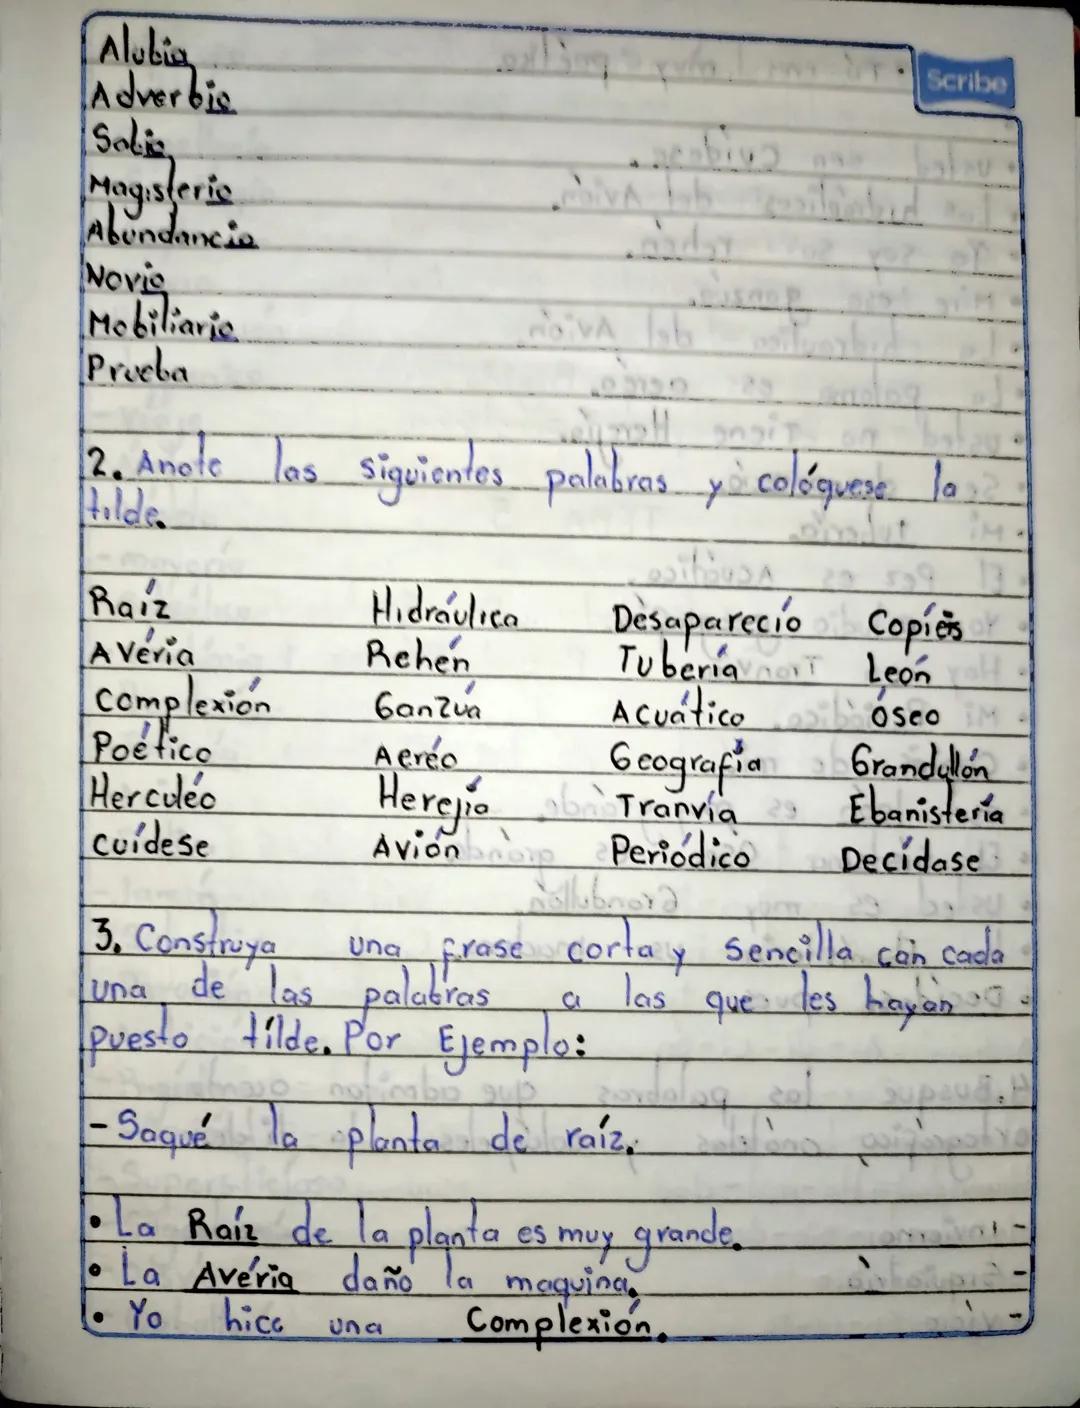 Scribe
Alubia
Adverbio
Sabio
Magisterio
Abundancia
Novio
Mobiliario
Prueba
2. Anote las siguientes palabras y colóquese la
tilde.
Raíz Hidráulica Désaparecío Copiés
Avéria Rehén Tubería León
Complexión Ganzúa Acuático óseo
Poético Aeréo Geografía Grandullón
Herculéo Herejía Tranvía Ebanistería
Cuídese Avión Periódico Decídase
3. Construya una frase corta y sencilla con cada
una de las palabras a las que les hayan
puesto tílde. Por Ejemplo:
- Saqué la planta de raíz.
• La Raíz de la planta es muy grande.
• La Avéria daño la maquina.
• Yo hice una Complexión.